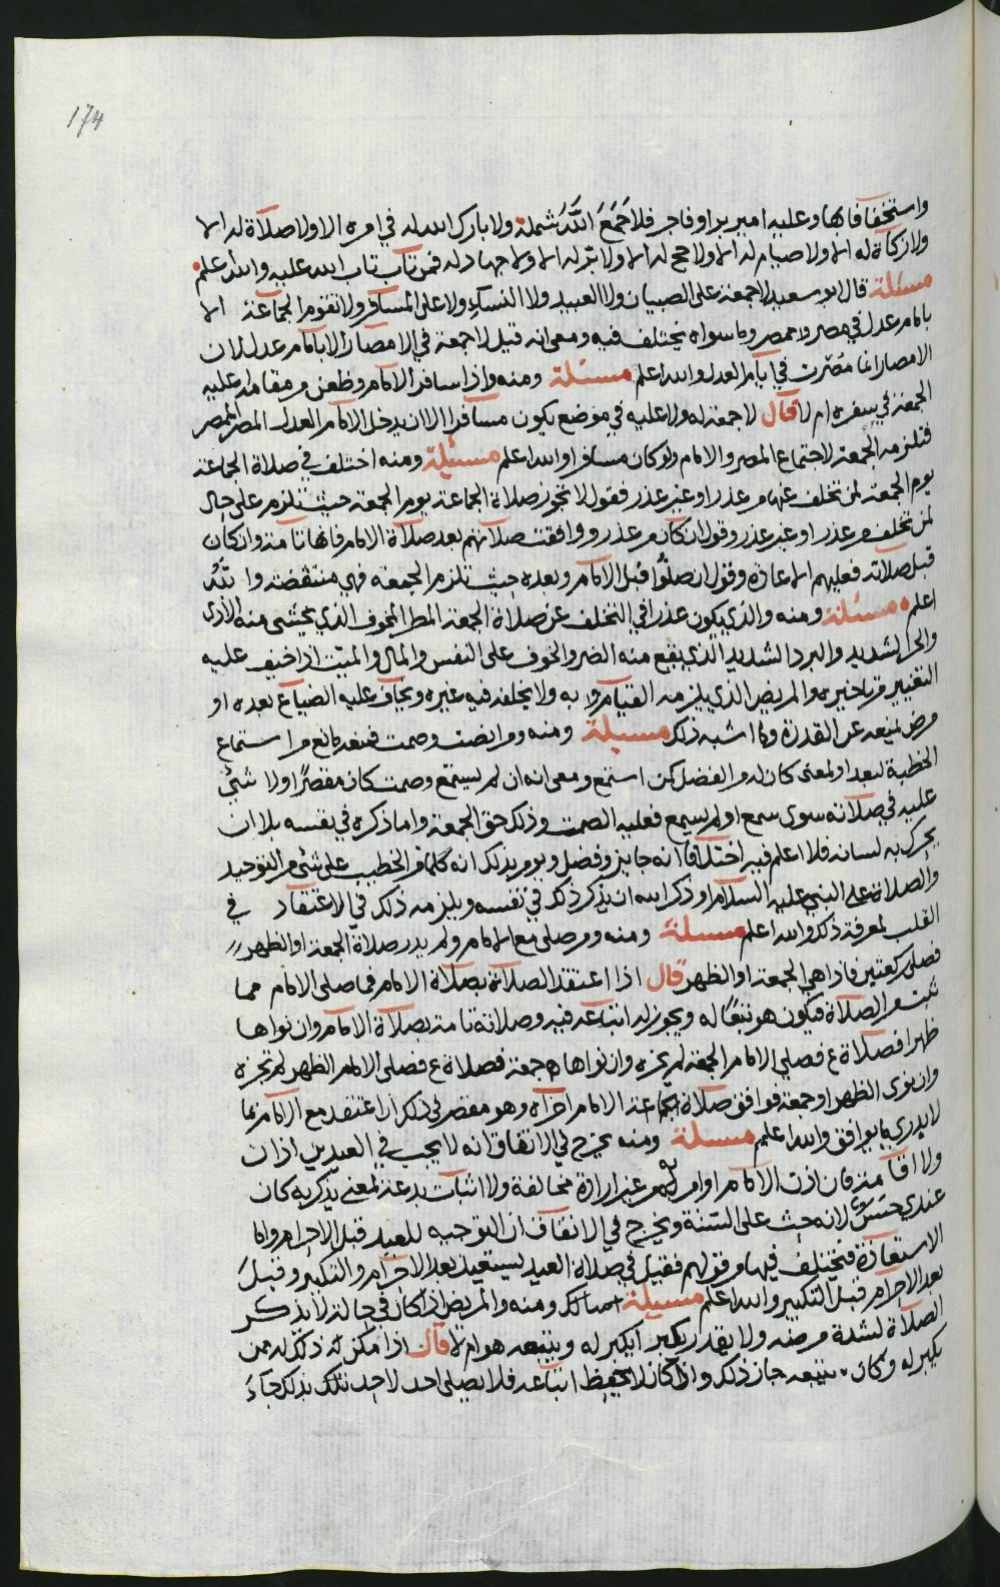 174
واستخفافا بها وعليه امير بر او فاجر فلا جَمَعَ اللَّهُ شمله ولا بارك الله له في امره الا ولا صلاة له الا
ولا زكاة له الا ولا صيام له الا ولا حج له الا ولا بر له الا ولا جهاد له فمن تاب تاب الله عليه والله اعلم
مسئلة قال ابو سعيد لا جمعة على الصبيان ولا العبيد ولا النساء ولا على المسافر ولا تقوم الجماعة الا
بامام عدل في مصر ممصر وما سواه يختلف فيه ومعي انه قيل لا جمعة في الامصار الا بامام عدل لان
الامصار انما مصرت في ايام العدل والله اعلم مسئلة ومنه واذا سافر الامام وظعن من مقامه عليه
الجمعة في سفره ام لا قال لا جمعة له ولا عليه في موضع يكون مسافرا الا ان يدخل الامام العدل المصر الممصر
فتلزمه الجمعة لاجتماع المصر والامام ولو كان مسافرا والله اعلم مسئلة ومنه اختلف في صلاة الجماعة
يوم الجمعة لمن تخلف عنها من عذر او غير عذر فقول لا تجوز صلاة الجماعة يوم الجمعة حيث تلزم على حال
لمن تخلف من عذر او غير عذر وقول ان كان من عذر ووافقت صلاتهم بعد صلاة الامام فانها تامة وان كان
قبل صلاته فعليهم الاعادة وقول ان صلوا قبل الامام وبعده حيث تلزم الجمعة فهي منتقضة والله
اعلم مسئلة ومنه والذي يكون عذرا في التخلف عن صلاة الجمعة المطر المخوف الذي يخشى منه الاذى
والحر الشديد والبرد الشديد الذي يقع منه الضر والخوف على النفس والمال والميت اذا خيف عليه
التغيير من تاخيره والمريض الذي يلزمه القيام به ولا يخلفه فيه غيره ويخاف عليه الضياع بعده او
مرض يمنعه عن القدرة وما اشبه ذلك مسئلة ومنه ومن انصت وصمت فمنعه مانع من استماع
الخطبة لبعد او لمعنى كان له من الفضل كمن استمع ومعي انه ان لم يستمع وصمت كان مقصرًا ولا شئ
عليه في صلاته سوى سمع او لم يسمع فعليه الصمت وذلك حق الجمعة واما ذكره في نفسه بلا ان
يحرك به لسانه فلا اعلم فيه اختلافا انه جايز وفضل ويومر بذلك انه كلما مر الخطيب على شئ من التوحيد
والصلاة على النبي عليه السلام او ذكر الله ان يذكر ذلك في نفسه ويلزمه ذلك في الاعتقاد في
القلب لمعرفة ذلك والله اعلم مسئلة ومنه ومن صلى مع الامام ولم يدر صلاة الجمعة او الظهر
فصلى ركعتين فاذا هي الجمعة او الظهر قال اذا اعتقد الصلاة بصلاة الامام فما صلى الامام مما
ثبت من الصلاة فيكون هو تبعًا له ويجوز له اتباعه فيه وصلاته تامة بصلاة الامام وان نواها
ظهرا فصلاة ع فصلى الامام الجمعة لم يجزه وان نواها جمعة فصلاة ع فصلى الامام الظهر لم تجزه
وان نوى الظهر او جمعة فوافق صلاة الجماعة الامام اجزاه وهو مقصر في ذلك ان اعتقد مع الامام بما
لا يدري ما يوافق والله اعلم مسئلة ومنه يخرج في الاتفاق انه لا يجب في العيدين اذان
ولا اقامة فان اذن الامام او امر بغير ارادة مخالفة ولا اثبات بدعة لمعنى يذكر به كان
عندي حسن لانه حث على السنة ويخرج في الاتفاق ان التوجيه للعيد قبل الاحرام واما
الاستعاذة فيختلف فيها من قولهم فقيل في صلاة العيد يستعيذ بعد الاحرام والتكبير وقيل
بعد الاحرام قبل التكبير والله اعلم مسئلة ومنه والمريض اذا كان في حالة لا يذكر
الصلاة لشدة مرضه ولا يقدر يكبر ايكبر له ويتبعه هو ام لا قال اذا امكن له ذلك له من
يكبر له وكان يتبعه جاز ذلك واذا كان لا يحفظ اتباعه فلا يصلي احد لاحد تلك بذلك جاء